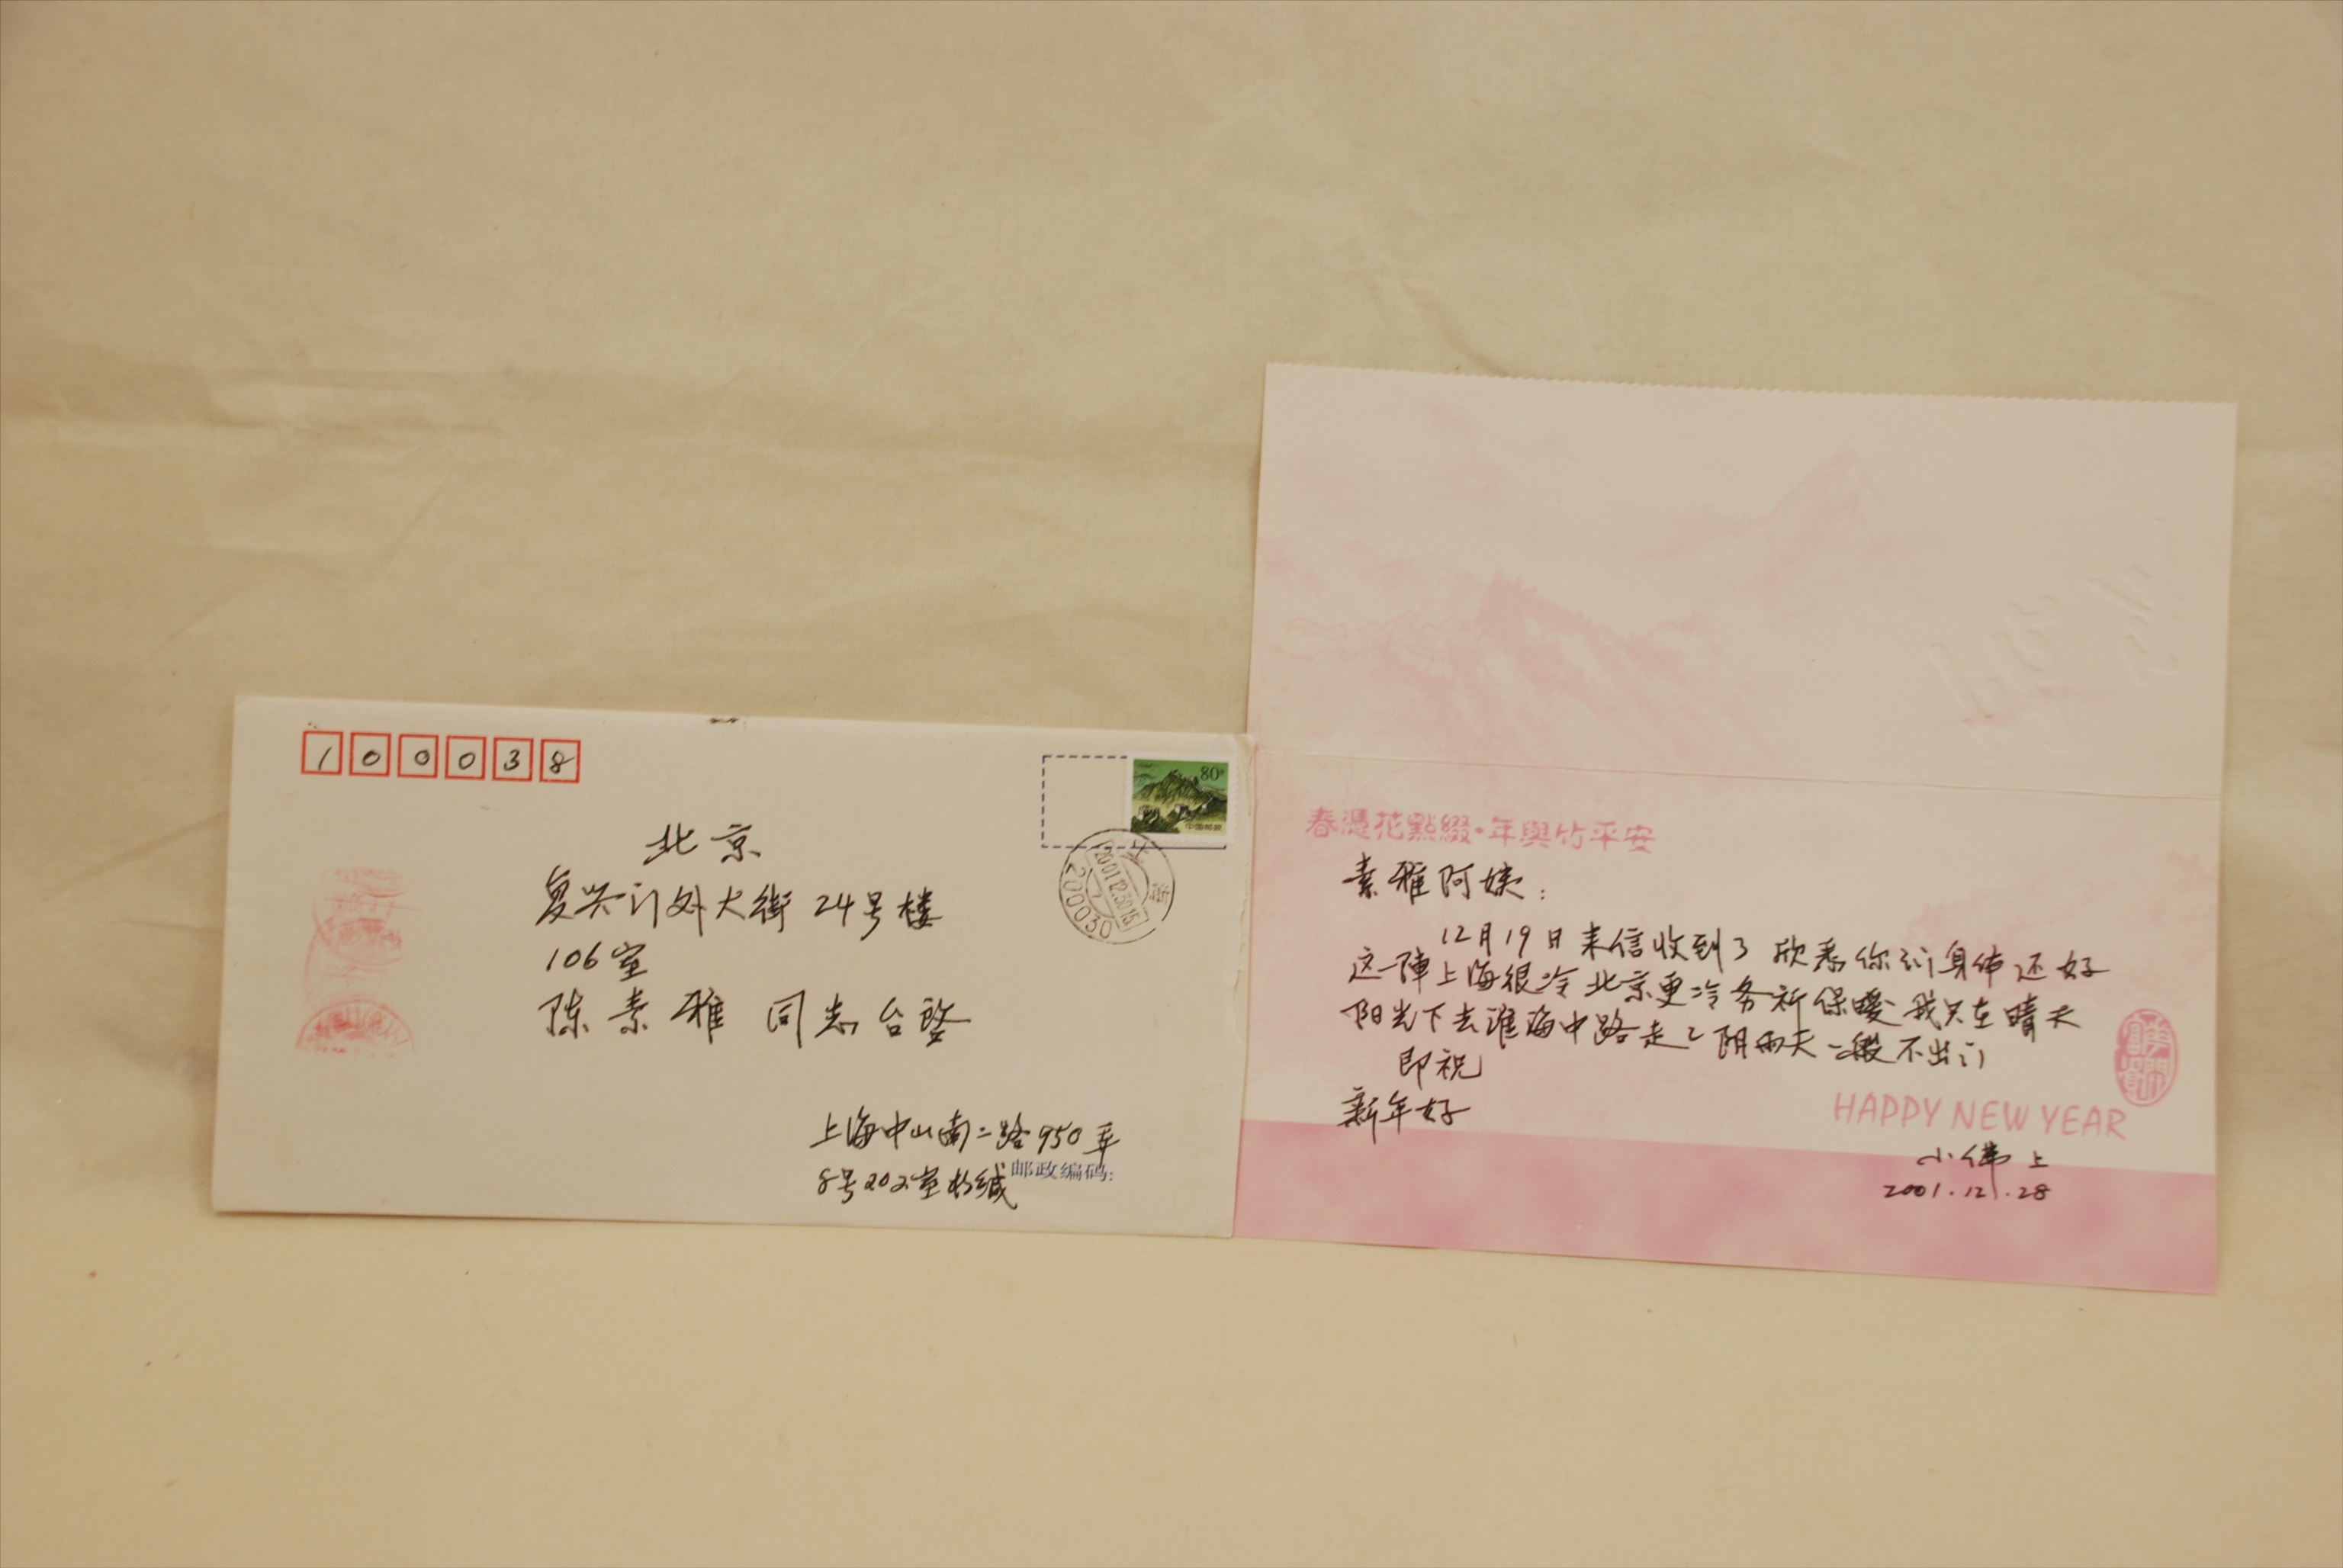 100038
80分
中国邮政
上海
2001.12.30.15
200030
北京
复兴门外大街24号楼
106室
陈素雅 同志台启
上海中山南二路950弄
8号202室 缄
邮政编码:
春憑花點綴·年與竹平安
素雅阿姨:
12月19日来信收到了 欣悉你们身体还好
这一陣上海很冷 北京更冷务祈保暖 我只在晴天
阳光下去淮海中路走走 阴雨天一般不出门
即祝
新年好
HAPPY NEW YEAR
小佛上
2001.12.28